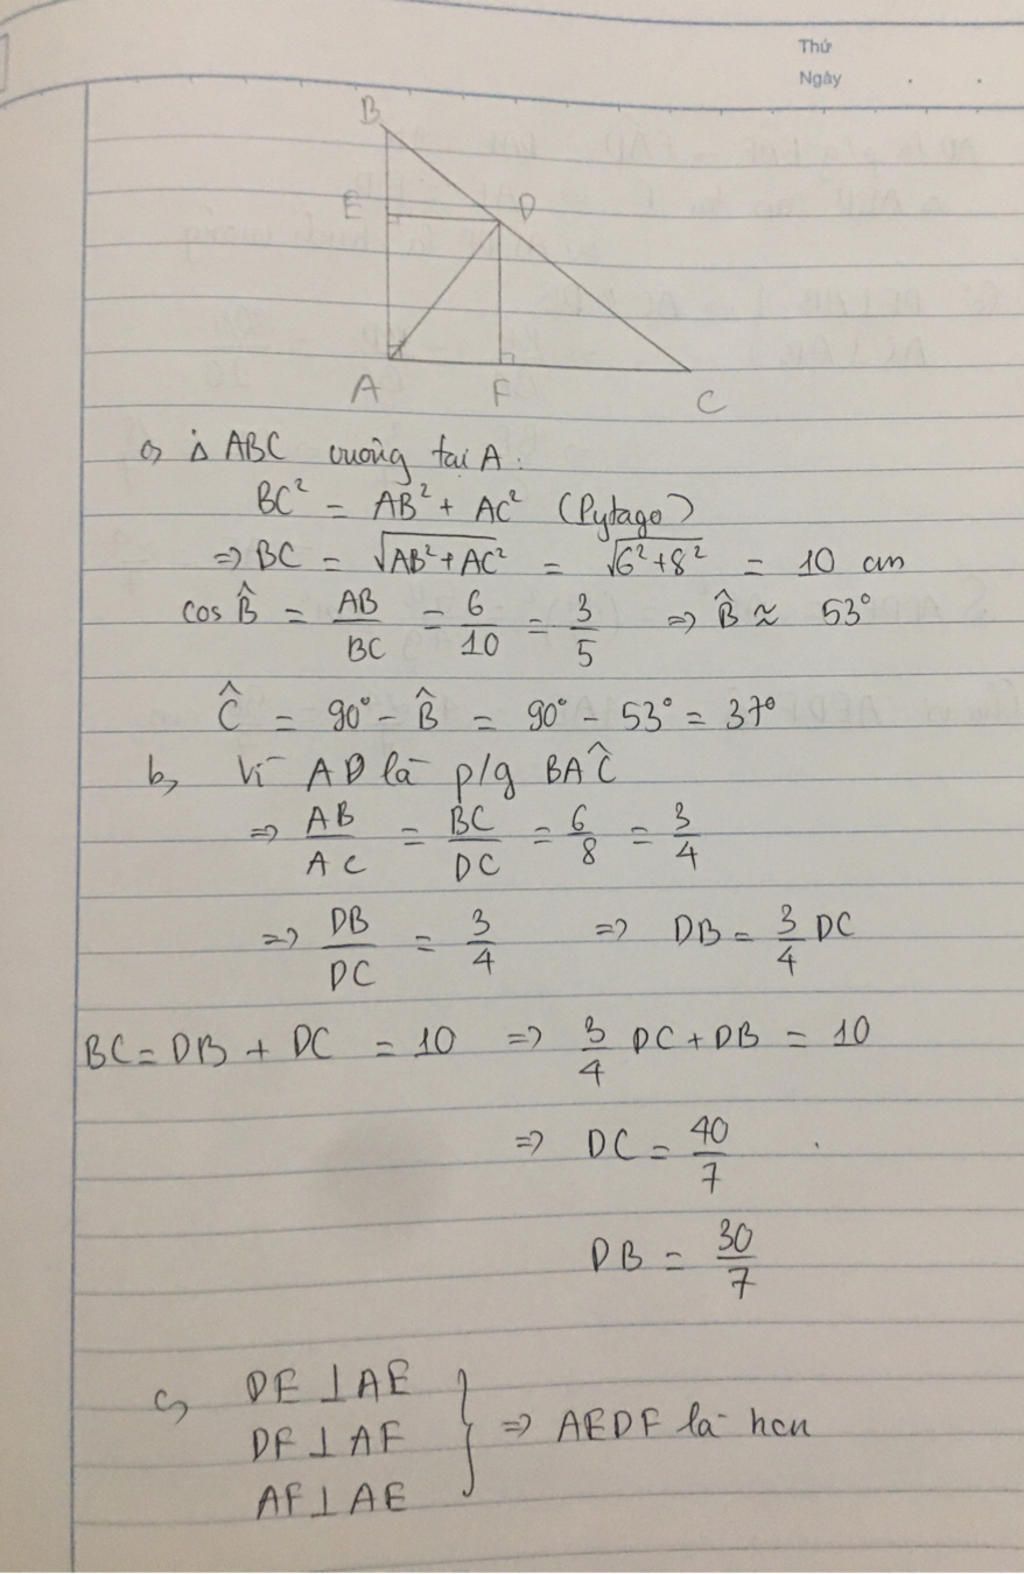 Thứ
Ngày
B
E D
A F C
a, Δ ABC vuông tại A.
BC² = AB² + AC² (Pytago)
=> BC = √(AB²+AC²) = √(6²+8²) = 10 cm
cos B̂ = AB/BC = 6/10 = 3/5 => B̂ ≈ 53°
Ĉ = 90° - B̂ = 90° - 53° = 37°
b, Vì AD là p/g BAĈ
=> AB/AC = BC/DC = 6/8 = 3/4
=> DB/DC = 3/4 => DB = 3/4 DC
BC = DB + DC = 10 => 3/4 DC + DB = 10
=> DC = 40/7
DB = 30/7
c, DE ⊥ AE
DF ⊥ AF } => AEDF là hcn
AF ⊥ AE